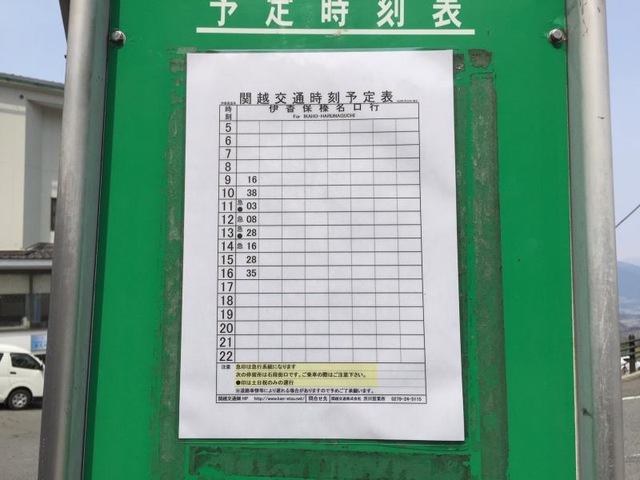 予定時刻表
関越交通時刻予定表
時刻 伊香保榛名口行
For IKAHO-HARUNAGUCHI
5
6
7
8
9 16
10 38
11 急● 03
12 急 08
13 急● 28
14 急 16
15 28
16 35
17
18
19
20
21
22
注意 急印は急行系統になります
次の停留所は石段街口です。ご乗車の際はご注意下さい。
●印は土日祝のみの運行
※道路事情等により遅れる場合がありますので予めご了承願います。
関越交通㈱HP http://www.kan-etsu.net/ 問合せ先 関越交通株式会社 渋川営業所 0279-24-5115